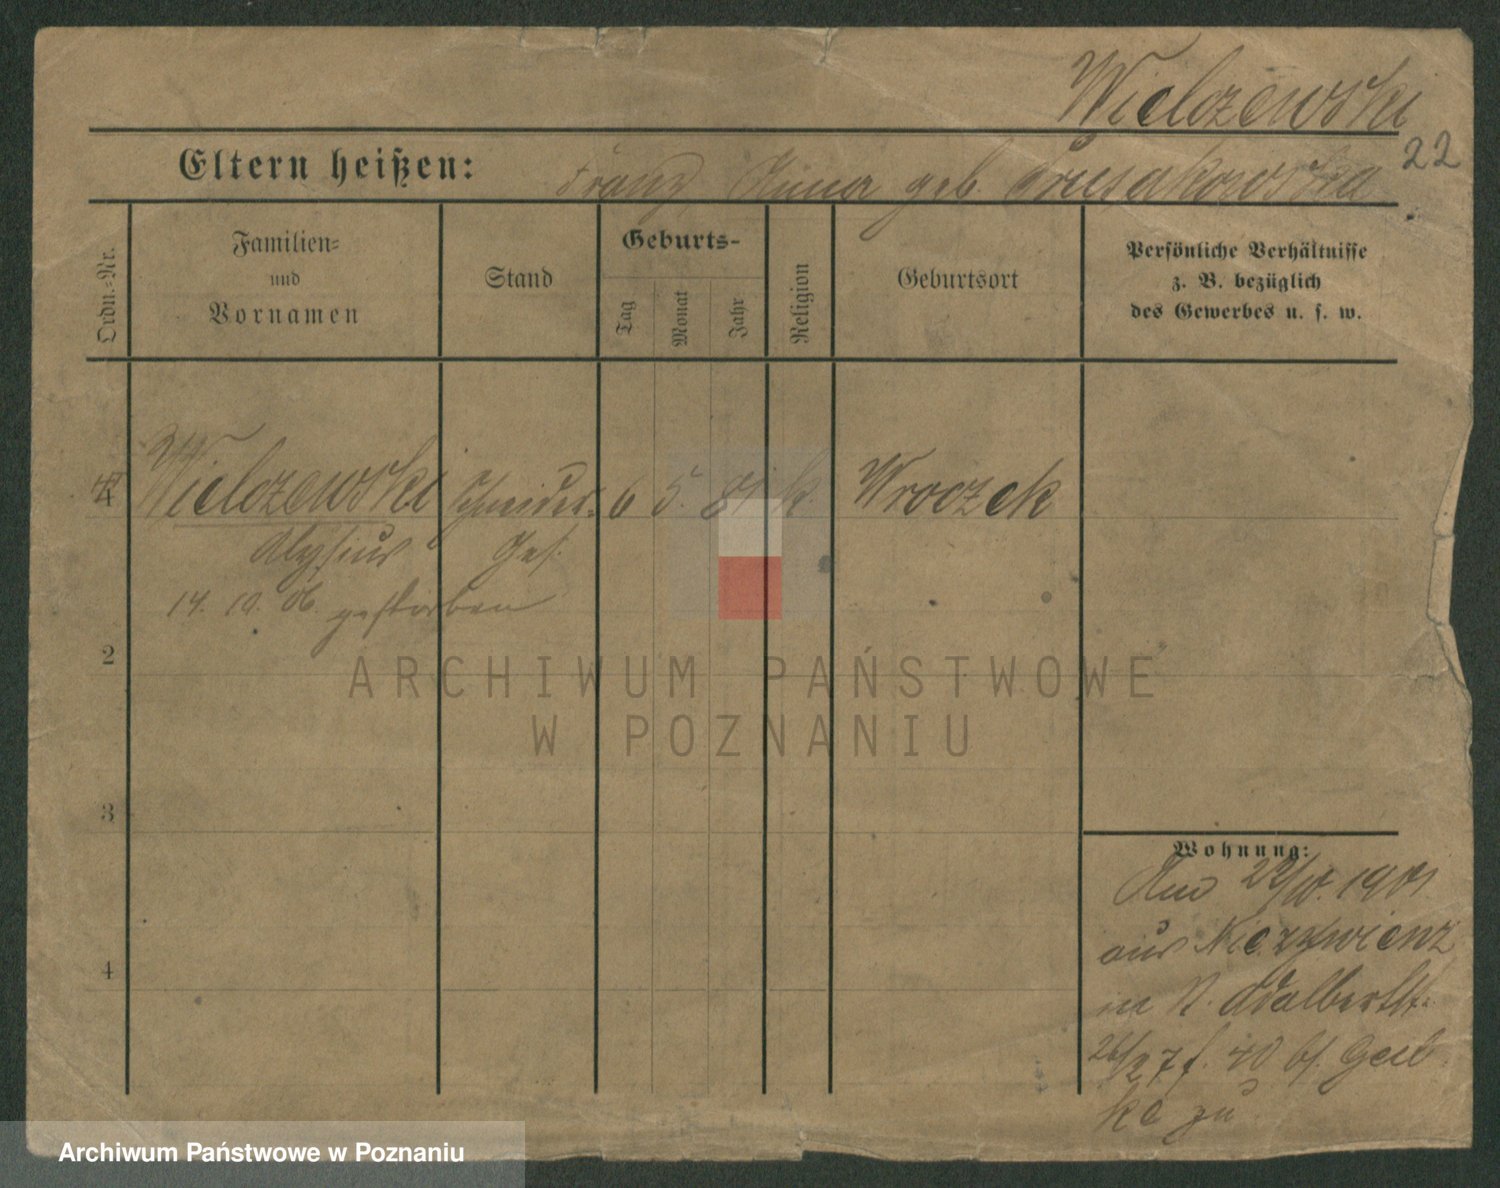 Wielozewski
22
Eltern heißen: Franz Anna geb.
Ordn.=Nr.
Familien=
und
Vornamen
Stand
Geburts-
Tag
Monat
Jahr
Religion
Geburtsort
Persönliche Verhältnisse
z. B. bezüglich
des Gewerbes u. s. w.
Wielozewski Schneider= 6 5. 81 k. Wroczek
Aloysius Ges.
14. 10. 06. gestorben
2
3
4
Wohnung:
Am 1901
aus
in St. Adalbertst.
40 bs.
ke zu
ARCHIWUM PAŃSTWOWE
W POZNANIU
Archiwum Państwowe w Poznaniu